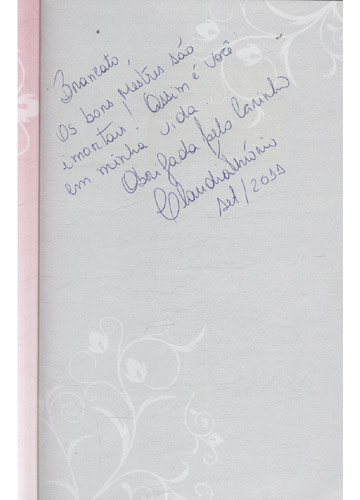 Brancato,
Os bons mestres são
imortais! Assim é você
em minha vida.
Obrigada pelo carinho
Claudia
set/2011